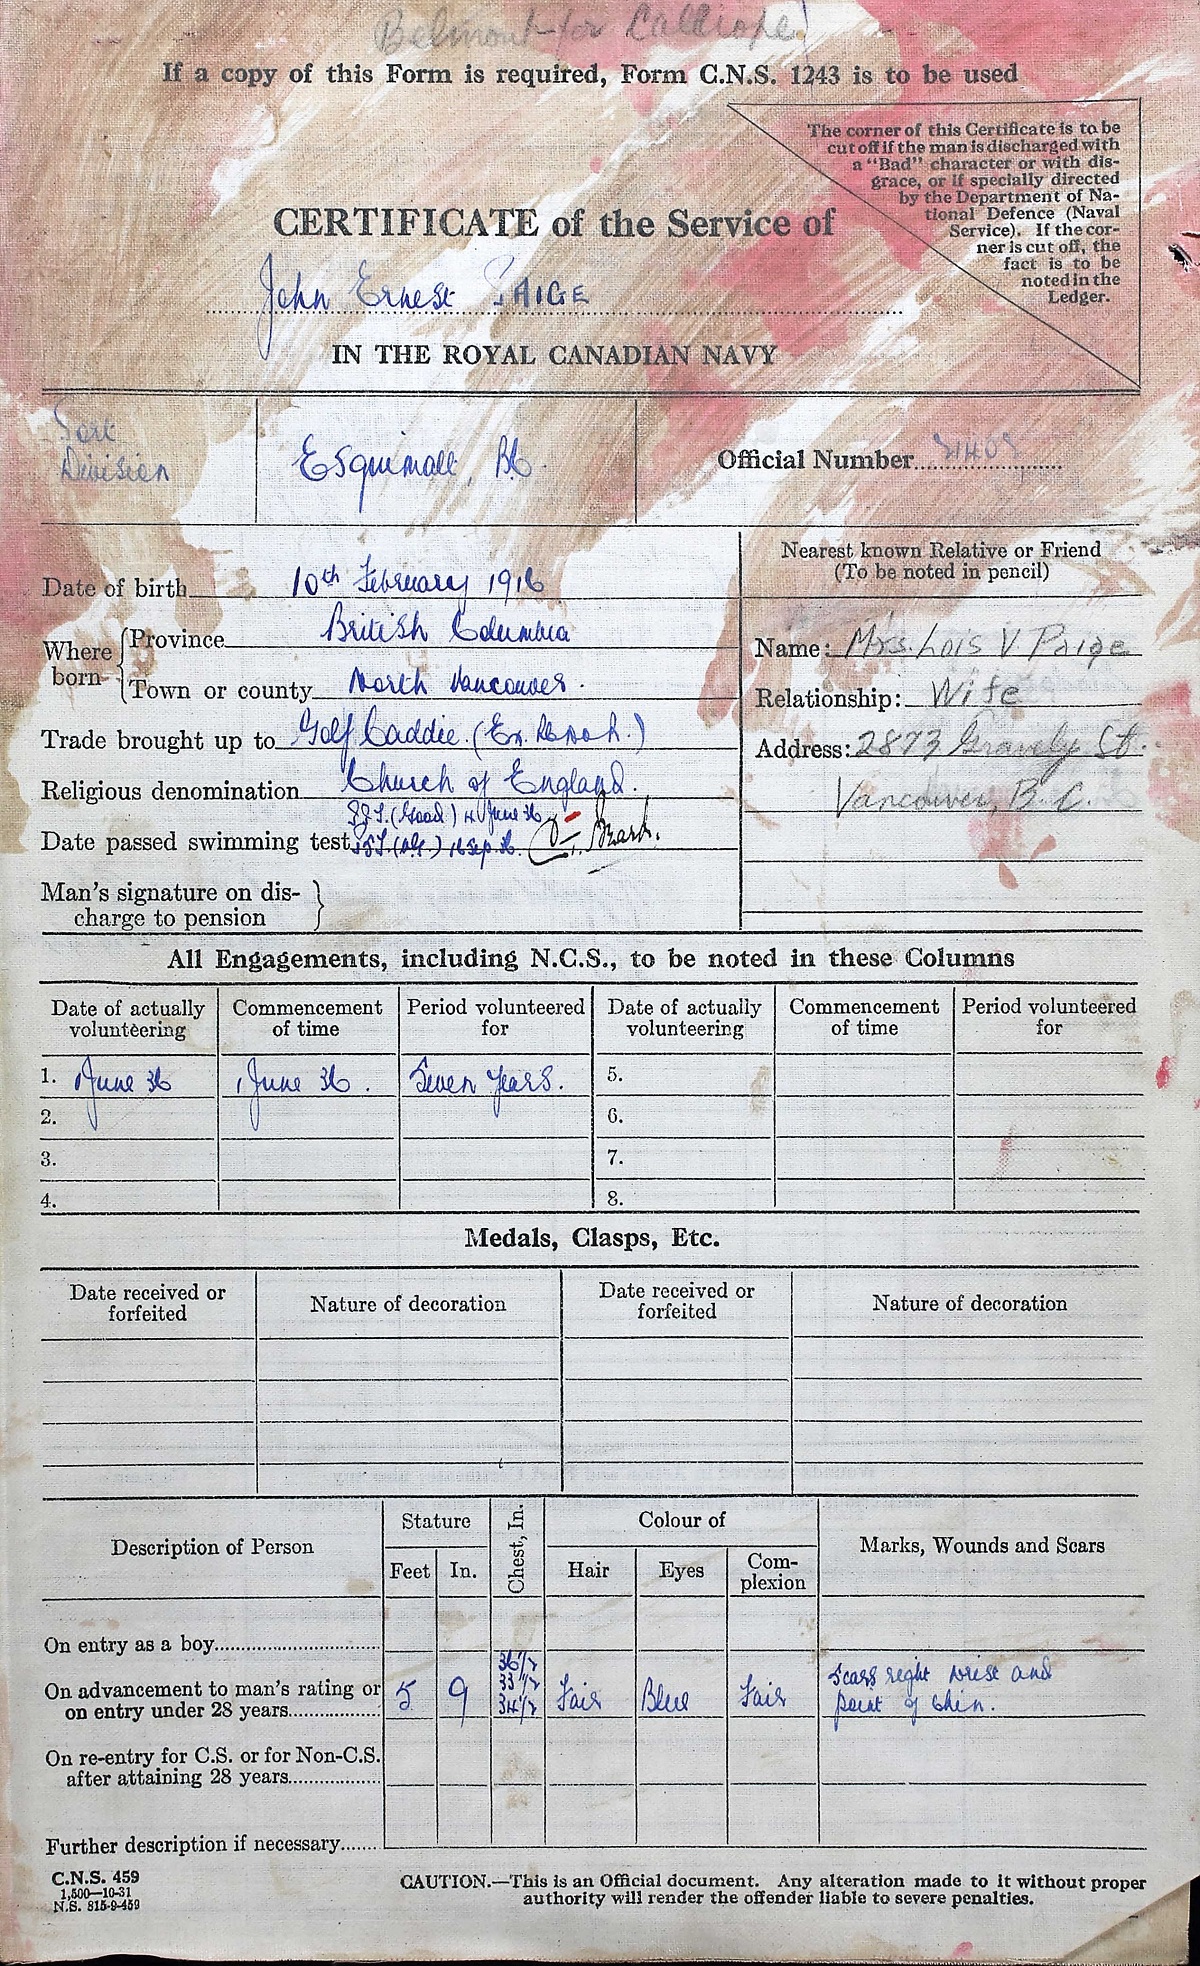 Belmont for Calliope
If a copy of this Form is required, Form C.N.S. 1243 is to be used
The corner of this Certificate is to be
cut off if the man is discharged with
a "Bad" character or with dis-
grace, or if specially directed
by the Department of Na-
tional Defence (Naval
Service). If the cor-
ner is cut off, the
fact is to be
noted in the
Ledger.
CERTIFICATE of the Service of
John Ernest PAIGE
IN THE ROYAL CANADIAN NAVY
Port
Division
Esquimalt, BC.
Official Number
Date of birth 10th February 1916
Where born
Province British Columbia
Town or county North Vancouver.
Trade brought up to Golf Caddie.
Religious denomination Church of England.
Date passed swimming test
(Good) June 36
16 Sep. 36
Man's signature on dis-
charge to pension
Nearest known Relative or Friend
(To be noted in pencil)
Name: Mrs. Lois V Paige
Relationship: Wife
Address: 2873 Gravely St.
Vancouver, B.C.
All Engagements, including N.C.S., to be noted in these Columns
Date of actually volunteering Commencement of time Period volunteered for Date of actually volunteering Commencement of time Period volunteered for
1. 1 June 36 1 June 36. Seven Years. 5.
2. 6.
3. 7.
4. 8.
Medals, Clasps, Etc.
Date received or forfeited Nature of decoration Date received or forfeited Nature of decoration
Description of Person Stature Chest, In. Colour of Marks, Wounds and Scars
Feet In. Hair Eyes Com-plexion
On entry as a boy
On advancement to man's rating or
on entry under 28 years 5 9 36½ 33½ 34½ Fair Blue Fair Scars right wrist and
point of chin.
On re-entry for C.S. or for Non-C.S.
after attaining 28 years
Further description if necessary
C.N.S. 459
1,500—10-31
N.S. 815-9-459
CAUTION.—This is an Official document. Any alteration made to it without proper
authority will render the offender liable to severe penalties.